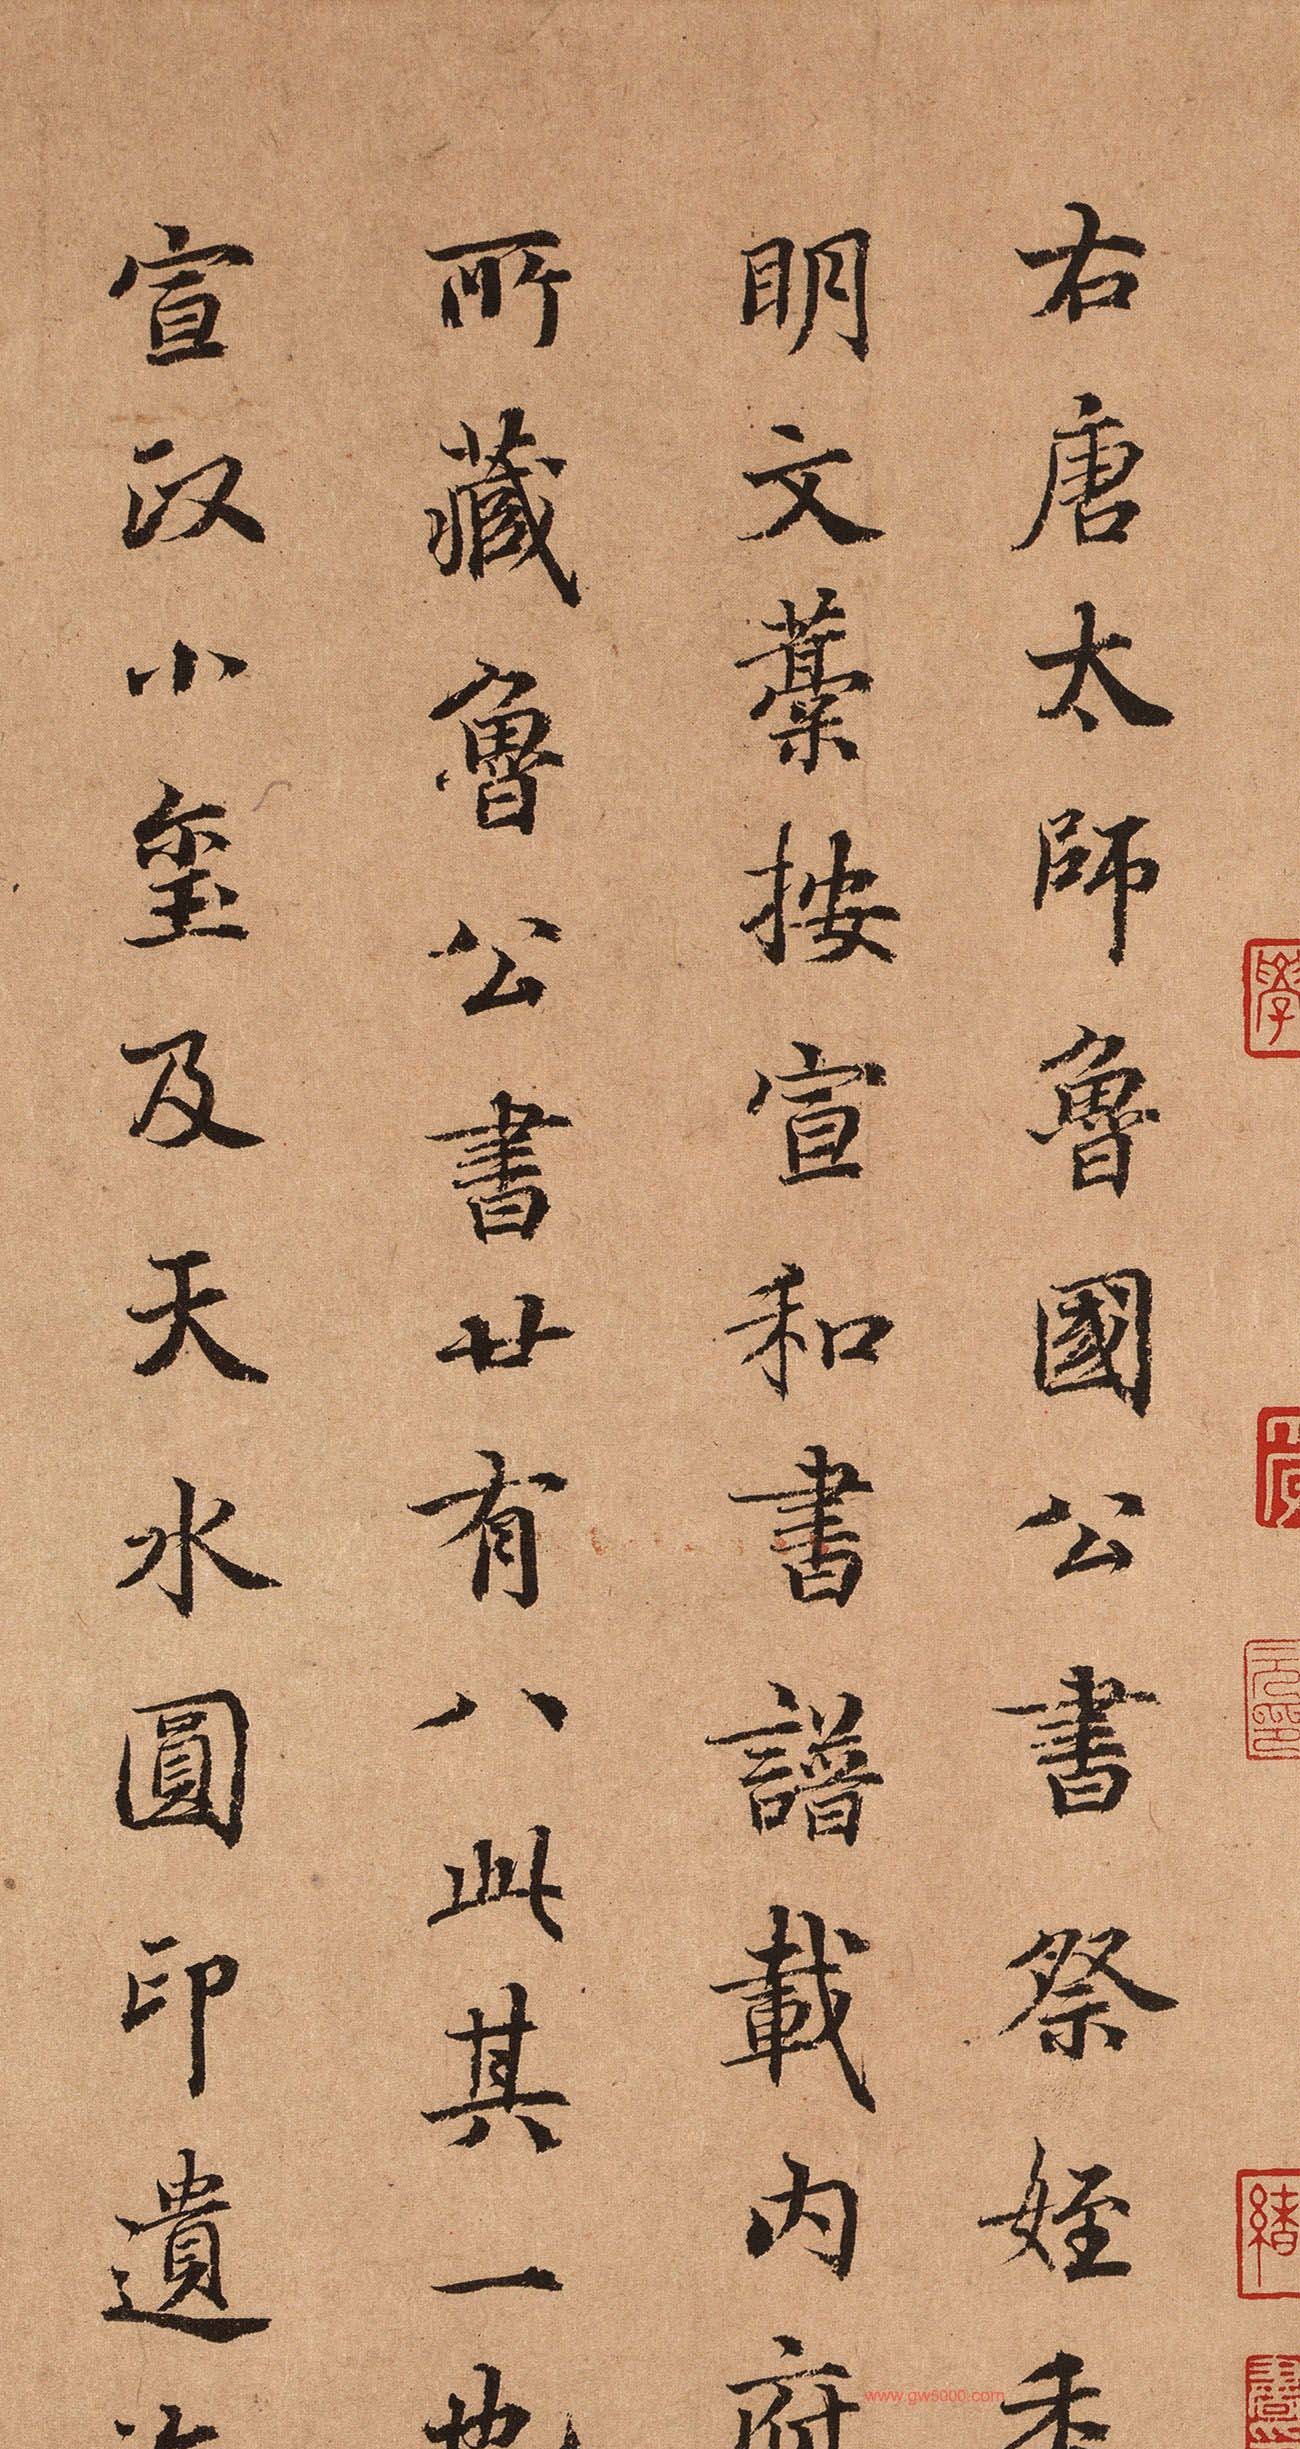 右唐太師魯國公書祭姪季
明文藁按宣和書譜載内府
所藏魯公書廿有八此其一也
宣政小璽及天水圓印遺
www.gw5000.com